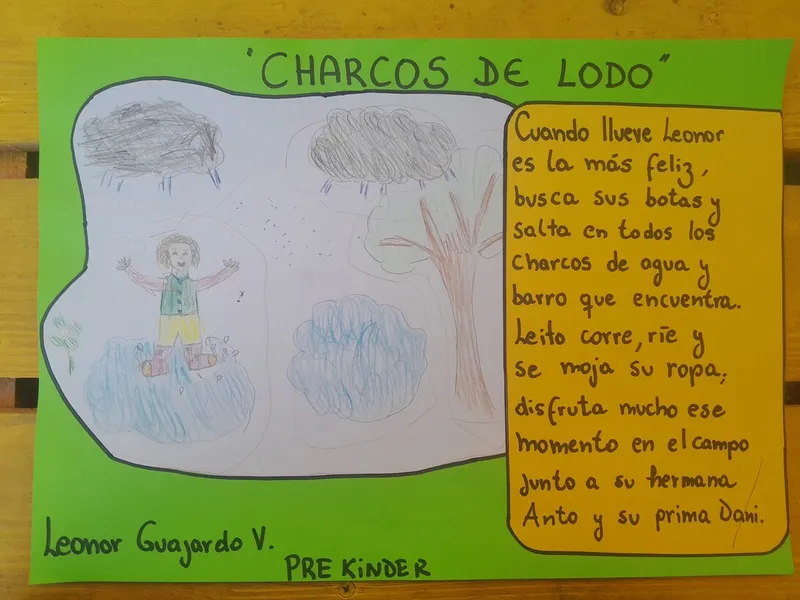 "CHARCOS DE LODO"
Cuando llueve Leonor
es la más feliz,
busca sus botas y
salta en todos los
charcos de agua y
barro que encuentra.
Leito corre, ríe y
se moja su ropa;
disfruta mucho ese
momento en el campo
junto a su hermana
Anto y su prima Dani.
Leonor Guajardo V.
PRE KINDER